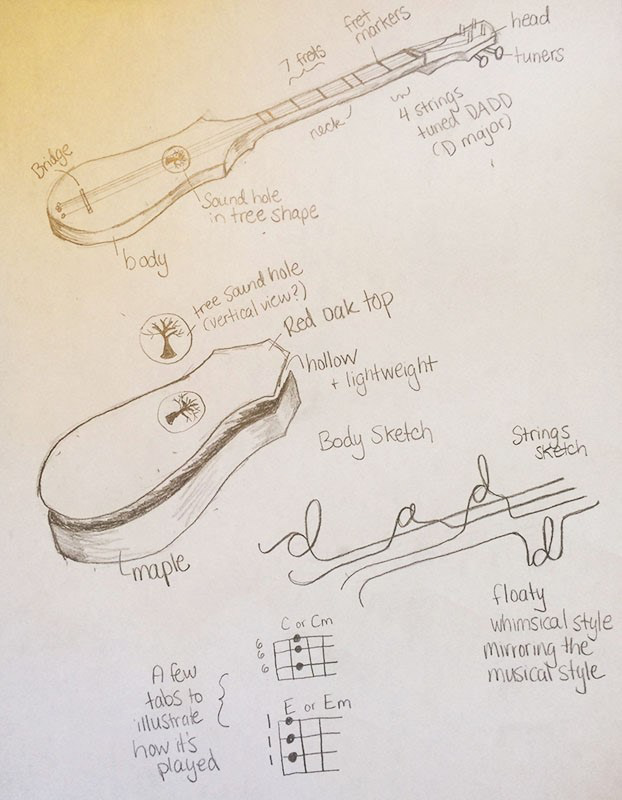 head
fret
markers
7 frets
tuners
neck
4 strings
tuned DADD
(D major)
Bridge
Sound hole
in tree shape
body
tree sound hole
(vertical view?)
Red oak top
hollow
+ lightweight
Body Sketch
Strings
sketch
d a d
d
maple
floaty
whimsical style
mirroring the
musical style
A few
tabs to
illustrate
how it's
played
C or Cm
6
6
6
E or Em
1
1
1